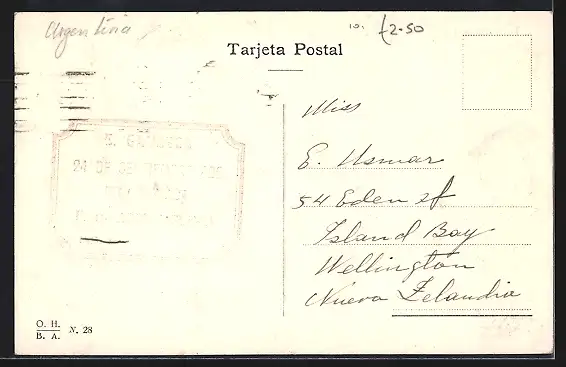 Argentina
£2.50
Tarjeta Postal
Miss
E. Usmar
54 Eden st
Island Bay
Wellington
Nueva Zelandia
O. H.
B. A.
N. 28